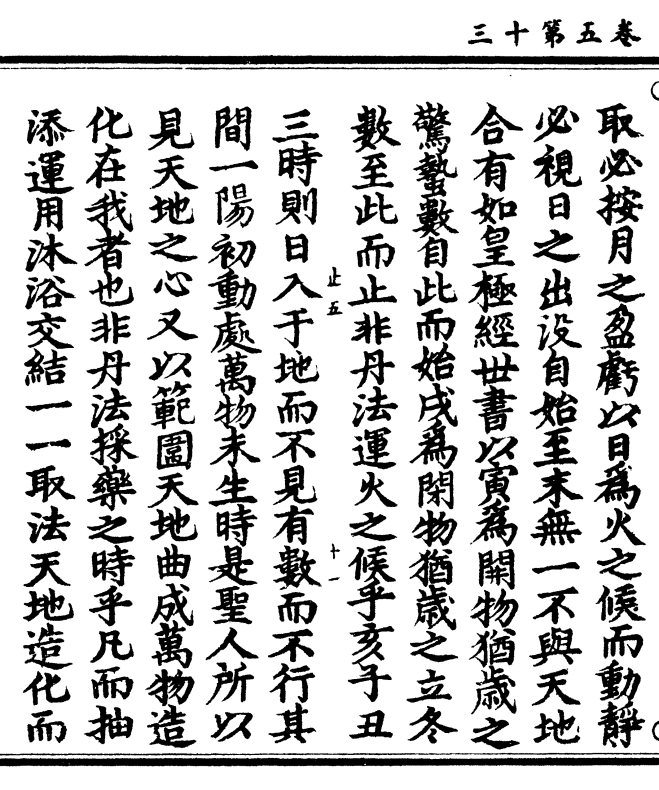 三十第五卷
取必按月之盈虧以日為火之候而動靜
必視日之出沒自始至末無一不與天地
合有如皇極經世書以寅為開物猶歲之
驚蟄數自此而始戌為閉物猶歲之立冬
數至此而止非丹法運火之候乎亥子丑
止五
十一
三時則日入于地而不見有數而不行其
間一陽初動處萬物未生時是聖人所以
見天地之心又以範圍天地曲成萬物造
化在我者也非丹法採藥之時乎凡而抽
添運用沐浴交結一一取法天地造化而